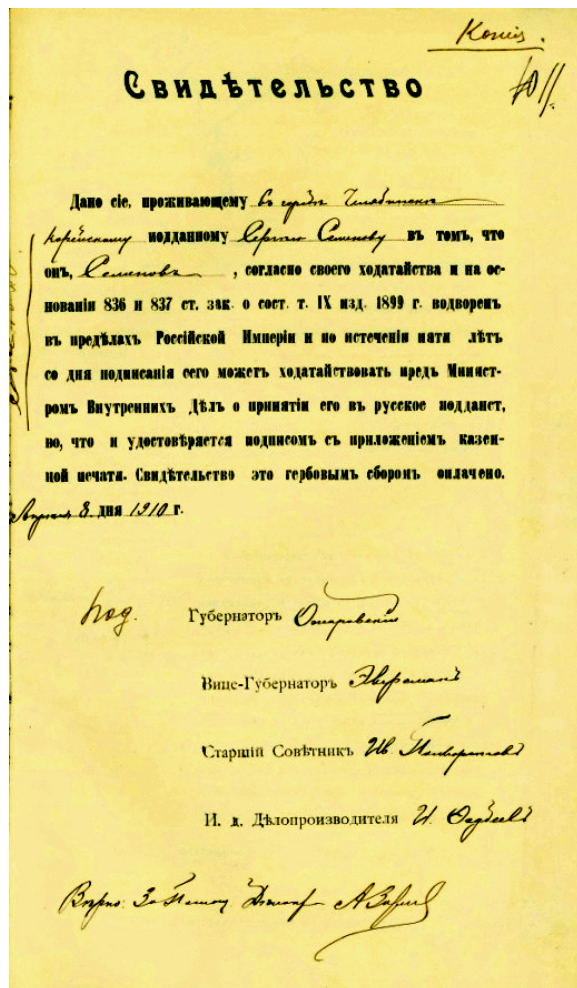 Копія.
Свидѣтельство
Дано сіе, проживающему въ городѣ Челябинскѣ
корейскому подданному Сергѣю Семенову въ томъ, что
онъ, Семеновъ, согласно своего ходатайства и на ос-
нованіи 836 и 837 ст. зак. о сост. т. IX изд. 1899 г. водворенъ
въ предѣлахъ Россійской Имперіи и по истеченіи пяти лѣтъ
со дня подписанія сего можетъ ходатайствовать предъ Минист-
ромъ Внутреннихъ Дѣлъ о принятіи его въ русское подданст,
во, что и удостовѣряется подписомъ съ приложеніемъ казен-
ной печати. Свидѣтельство это гербовымъ сборомъ оплачено.
Апрѣля 8 дня 1910 г.
под. Губернаторъ
Вице-Губернаторъ Эверсманъ
Старшій Совѣтникъ Ив.
И. д. Дѣлопроизводителя И. Фадѣевъ